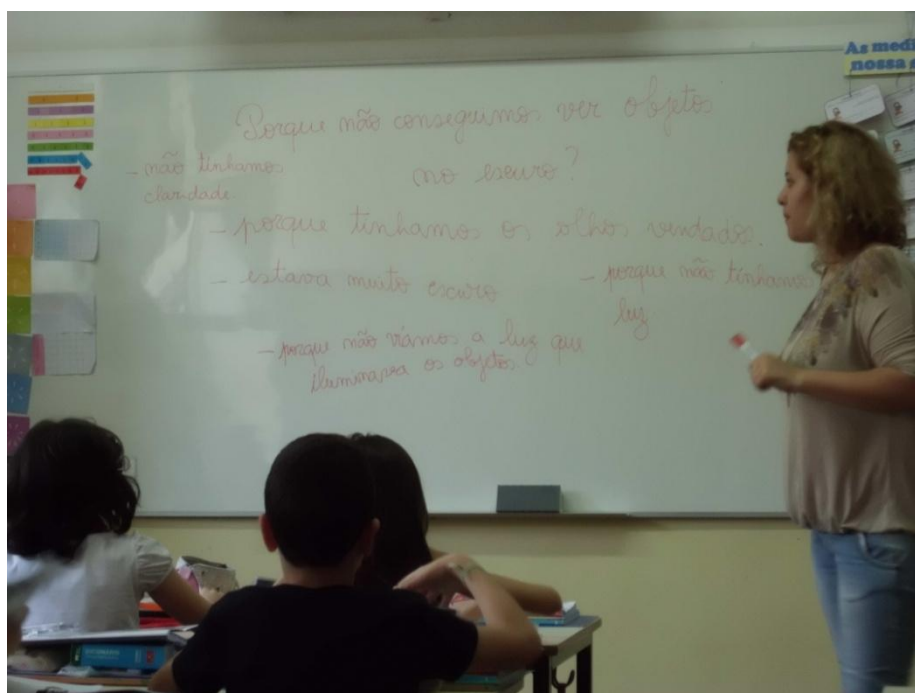 As medi
nossa
Porque não conseguimos ver objetos
no escuro?
- não tínhamos
claridade.
- porque tínhamos os olhos vendados.
- estava muito escuro
- porque não tínhamos
luz
- porque não víamos a luz que
iluminava os objetos.